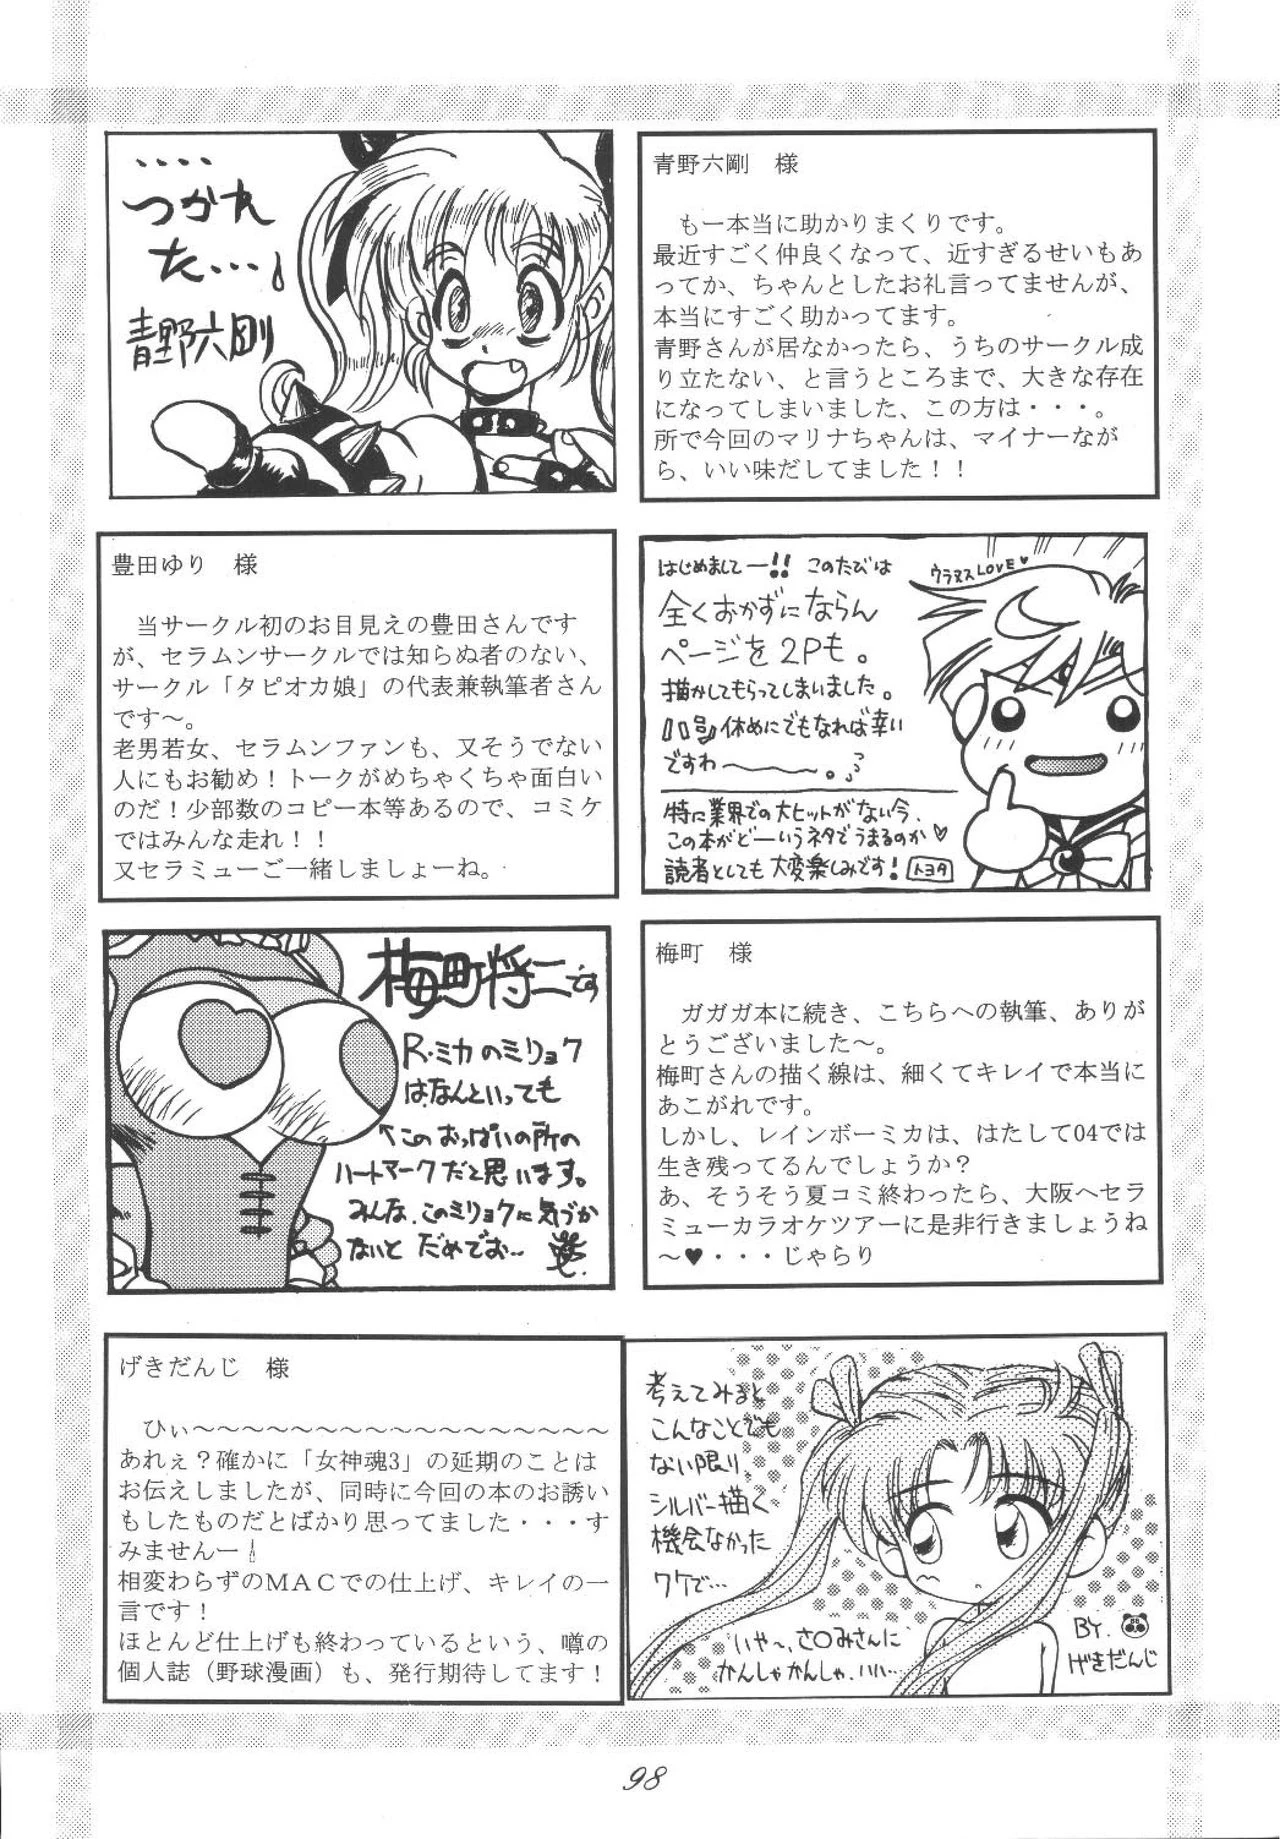 ････
つかれ
た…
青野六剛
青野六剛　様
も一本当に助かりまくりです。
最近すごく仲良くなって、近すぎるせいもあ
ってか、ちゃんとしたお礼言ってませんが、
本当にすごく助かってます。
青野さんが居なかったら、うちのサークル成
り立たない、と言うところまで、大きな存在
になってしまいました、この方は・・・。
所で今回のマリナちゃんは、マイナーなが
ら、いい味だしてました！！
豊田ゆり　様
当サークル初のお目見えの豊田さんです
が、セラムンサークルでは知らぬ者のない、
サークル「タピオカ娘」の代表兼執筆者さん
です～。
老男若女、セラムンファンも、又そうでない
人にもお勧め！トークがめちゃくちゃ面白い
のだ！少部数のコピー本等あるので、コミケ
ではみんな走れ！！
又セラミューご一緒しましょーね。
はじめましてー!! このたびは
全くおかずにならん
ページを2Pも。
描かしてもらってしまいました。
『箸』休めにでもなれば幸い
ですわ〜〜〜。
ウラヌスLOVE♥
特に業界での大ヒットがない今、
この本がどーいうネタでうまるのか♥
読者としても大変楽しみです! トヨタ
梅町将二です
R・ミカのミリョク
はなんといっても
←このおっぱいの所の
ハートマークだと思います。
みんな、このミリョクに気づか
ないと だめでお…
梅町　様
ガガガ本に続き、こちらへの執筆、ありが
とうございました～。
梅町さんの描く線は、細くてキレイで本当に
あこがれです。
しかし、レインボーミカは、はたして04では
生き残ってるんでしょうか？
あ、そうそう夏コミ終わったら、大阪へセラ
ミューカラオケツアーに是非行きましょうね
～♥・・・じゃらり
げきだんじ　様
ひぃ～～～～～～～～～～～～～～～～～
あれぇ？確かに「女神魂3」の延期のことは
お伝えしましたが、同時に今回の本のお誘い
もしたものだとばかり思ってました・・・す
みませんー
相変わらずのＭＡＣでの仕上げ、キレイの一
言です！
ほとんど仕上げも終わっているという、噂の
個人誌（野球漫画）も、発行期待してます！
考えてみると
こんなことでも
ない限り、
シルバー描く
機会なかった
ワケで…
いや〜、さ○みさんに
かんしゃかんしゃ. いい…
BY.
げきだんじ
98